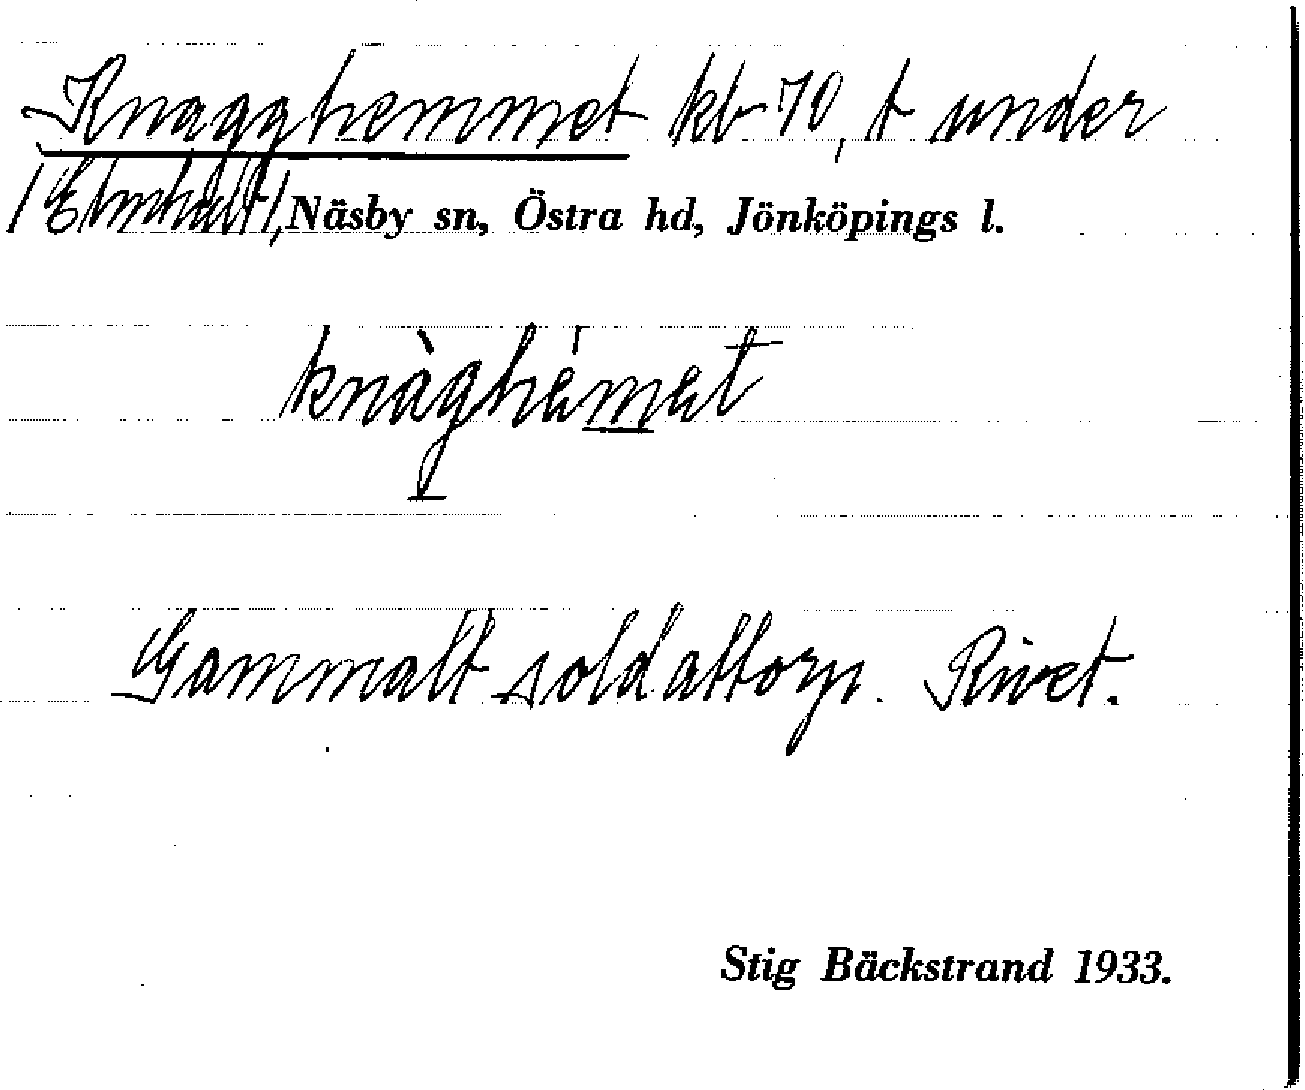 Knagghemmet kb 70, t under
/Elmhult/, Näsby sn, Östra hd, Jönköpings l.
knàghémet
Gammalt soldattorp. Rivet.
Stig Bäckstrand 1933.